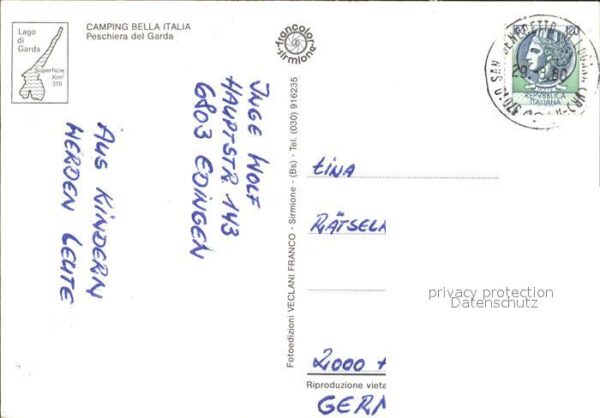 Lago
di
Garda
Superficie
Km²
370
CAMPING BELLA ITALIA
Peschiera del Garda
francolor
sirmione
29-8.80
REPVBBLICA
ITALIANA
INGE WOLF
HAUPTSTR 143
6803 EDINGEN
AUS KINDERN
WERDEN LEUTE
Fotoedizioni VECLANI FRANCO - Sirmione - (Bs) - Tel. (030) 916235
RÄTSEL
privacy protection
Datenschutz
2000
Riproduzione vieta
GER